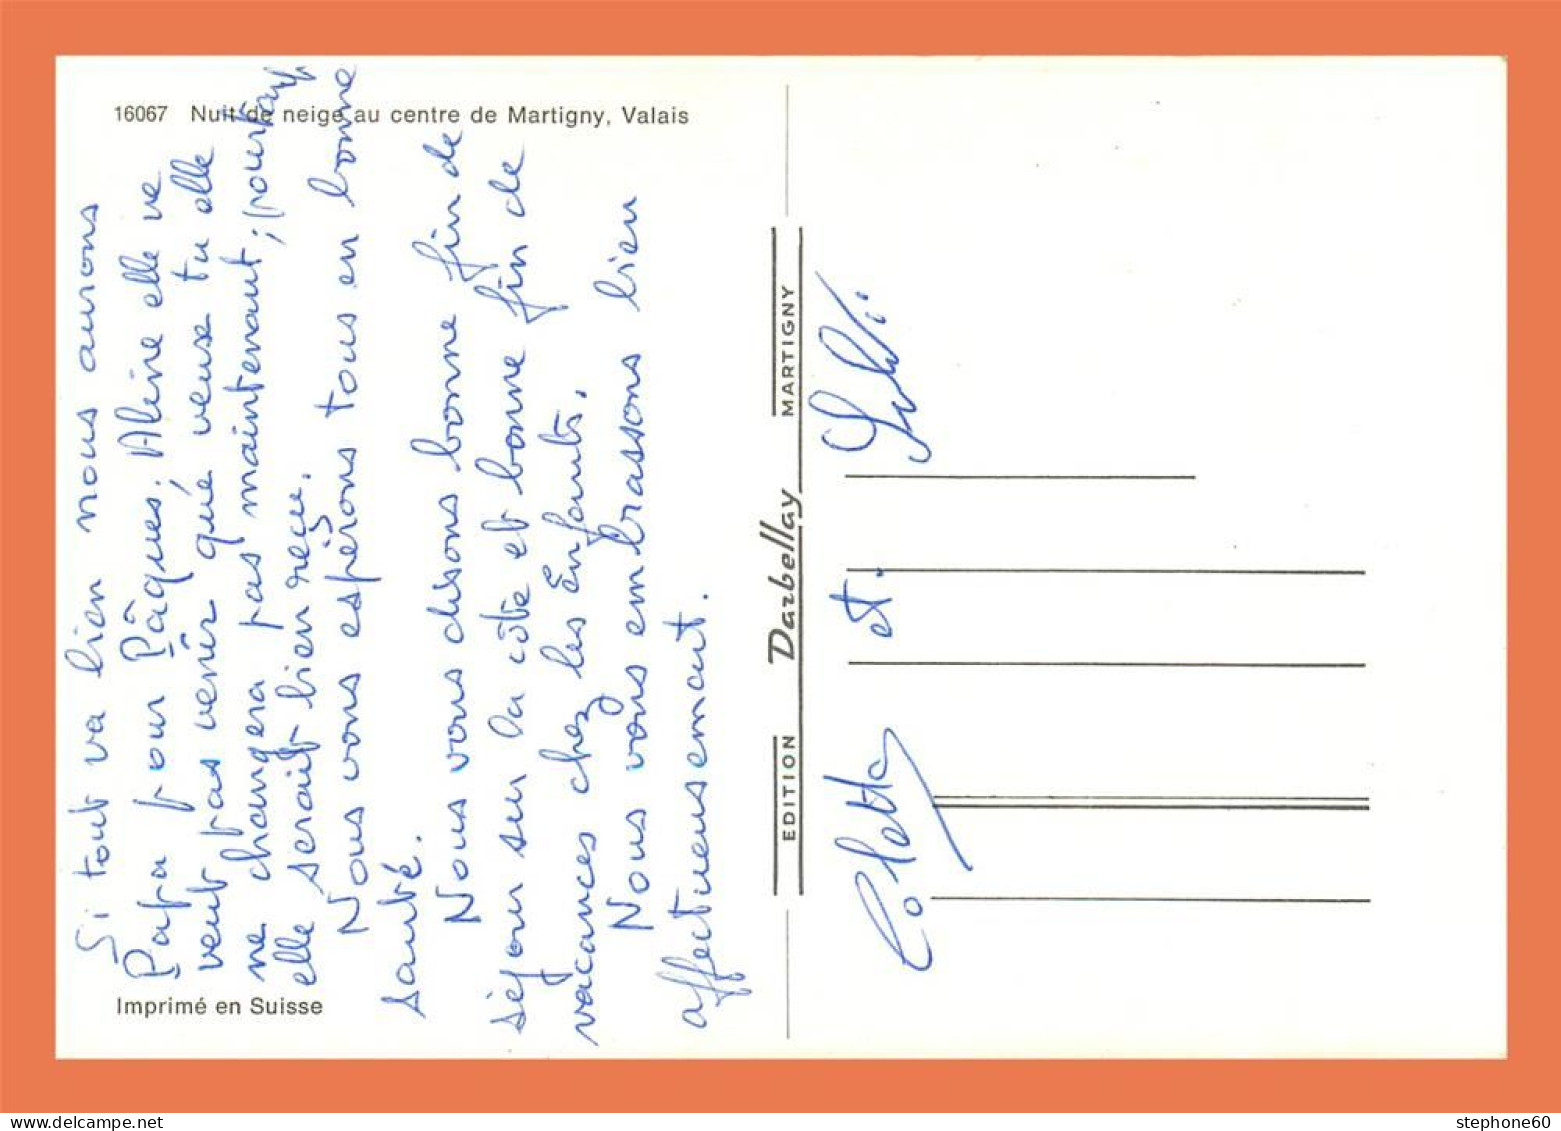 16067 Nuit de neige au centre de Martigny, Valais
Si tout va bien nous aurons
Papa pour Pâques, Aline elle ne
veut pas venir que veux tu elle
ne changera pas maintenant; pourtant
elle serait bien reçu.
Nous vous espérons tous en bonne
santé.
Nous vous disons bonne fin de
séjour sur la côte et bonne fin de
vacances chez les Enfants.
Nous vous embrassons bien
affectueusement.
Colette et.
Imprimé en Suisse
EDITION Darbellay MARTIGNY
stephone60